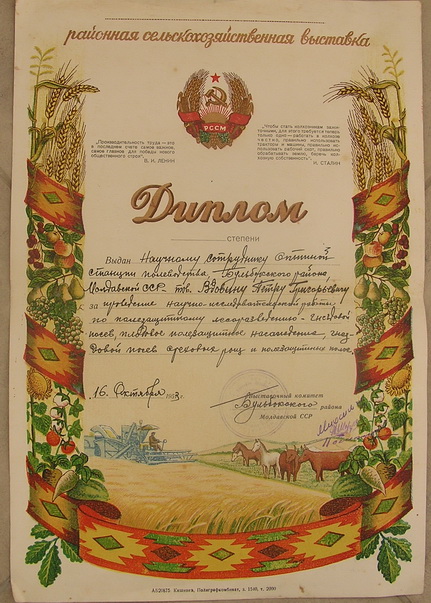 районная сельскохозяйственная выставка
РССМ
„Производительность труда — это
в последнем счете самое важное,
самое главное для победы нового
общественного строя".
В. И. ЛЕНИН
„Чтобы стать колхозникам зажи-
точными, для этого требуется теперь
только одно — работать в колхозе
честно, правильно использовать
тракторы и машины, правильно ис-
пользовать рабочий скот, правильно
обрабатывать землю, беречь кол-
хозную собственность".
И. СТАЛИН
Диплом
степени
Выдан Научному сотруднику Опытной
станции полеводства, Бульбокского района,
Молдавской ССР тов. Вдовину Петру Григорьевичу
за проведение научно-исследовательской работы
по полезащитному лесоразведению - гнездовой
посев, плодовое полезащитное насаждение, гнез-
довой посев ореховых рощ и полезащитных полос.
16 Октября 195 г.
Выставочный комитет
Бульбокского района
Молдавской ССР
Кишинев, Полиграфкомбинат, з. 1540, т. 2000